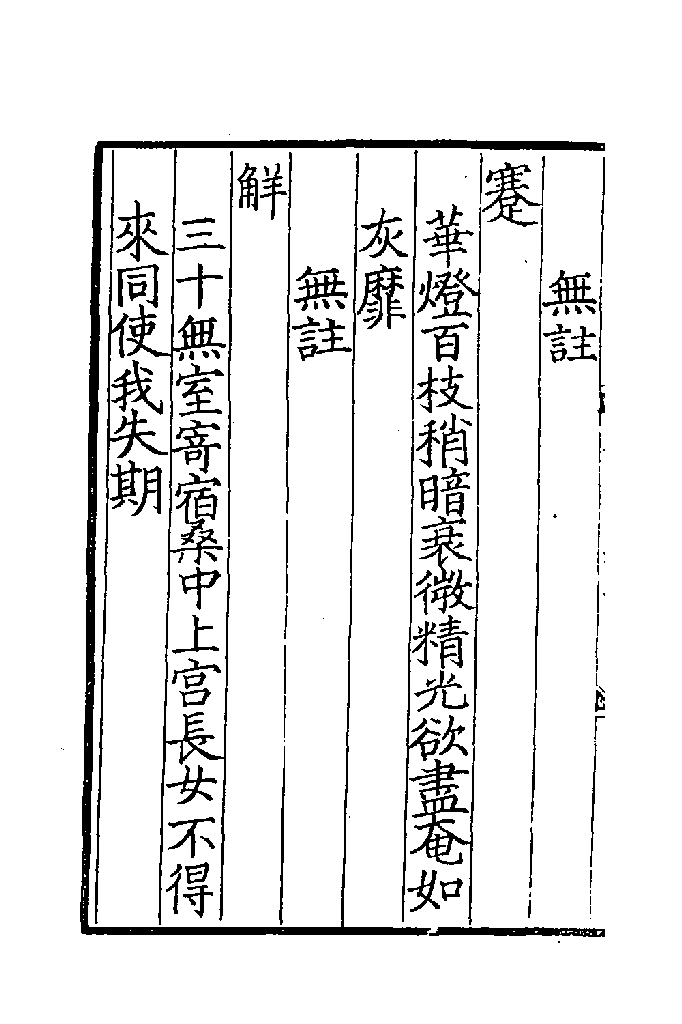 無註
蹇
華燈百枝稍暗衰微精光欲盡奄如
灰靡
無註
觧
三十無室寄宿桑中上宫長女不得
來同使我失期